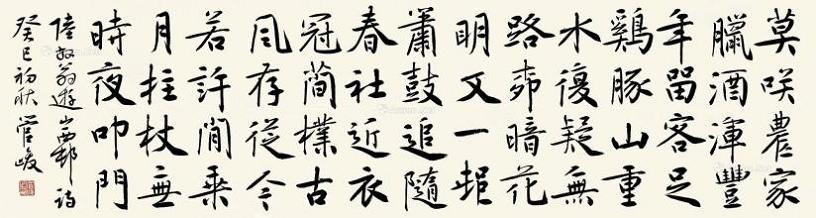 莫咲農家
臘酒渾豐
年留客足
雞豚山重
水復疑無
路柳暗花
明又一邨
蕭鼓追隨
春社近衣
冠簡樸古
風存從今
若許閒乘
月拄杖無
時夜叩門
陸放翁遊山西邨詩
癸巳初秋管峻